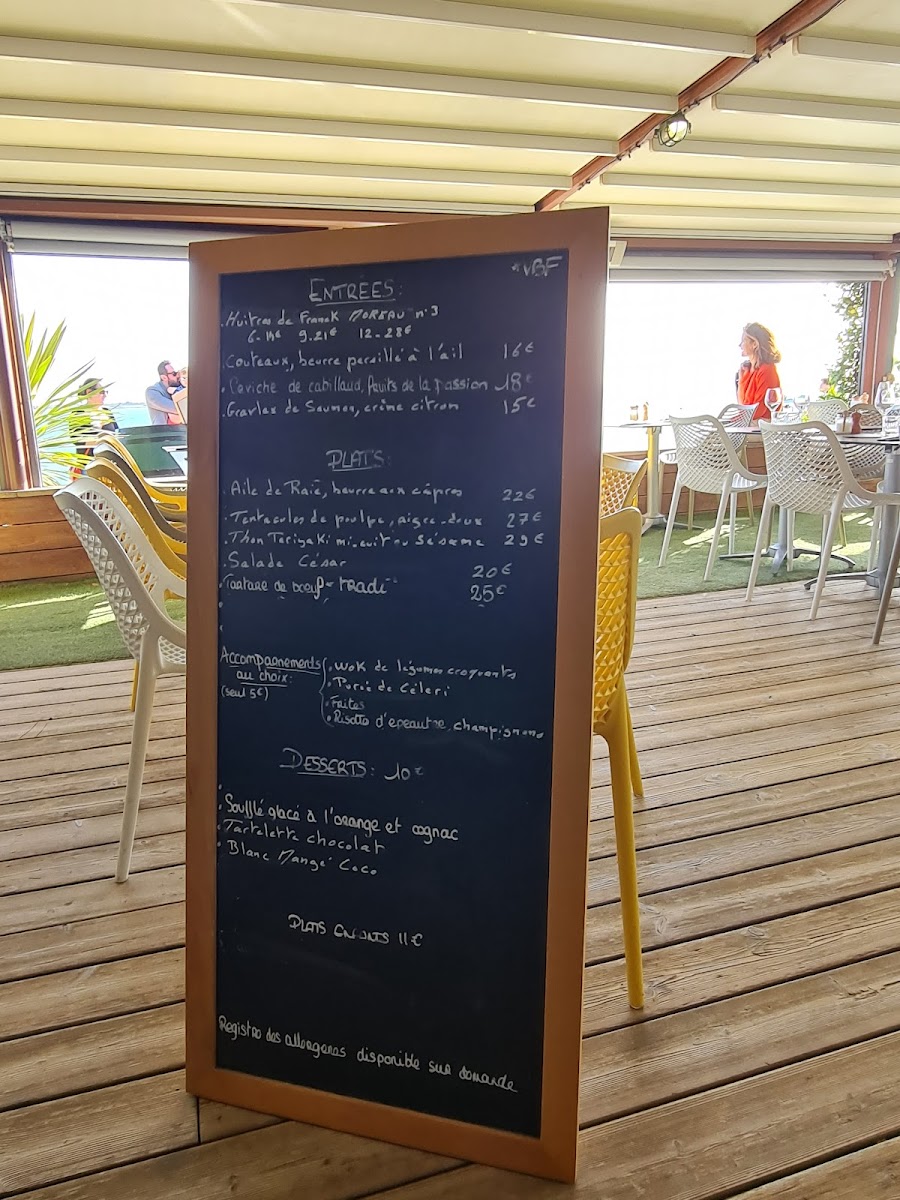 *VBF
ENTRÉES:
. Huitres de Franck MOREAU n°3
6-14€ 9-21€ 12-28€
. Couteaux, beurre persillé à l'ail 16€
. Ceviche de cabillaud, fruits de la passion 18€
. Gravlax de Saumon, crème citron 15€
PLATS:
. Aile de Raie, beurre aux câpres 22€
. Tentacules de poulpe, aigre-doux 27€
. Thon Teriyaki mi-cuit au Sésame 29€
. Salade César 20€
. Tartare de bœuf "tradi" 25€
Accompagnements
au choix:
(seul 5€)
. Wok de légumes croquants
. Purée de Céleri
. Frites
. Risotto d'épeautre, champignons
DESSERTS: 10€
. Soufflé glacé à l'orange et cognac
. Tartelette chocolat
. Blanc Mangé Coco
PLATS ENFANTS 11€
Registre des allergenes disponible sur demande